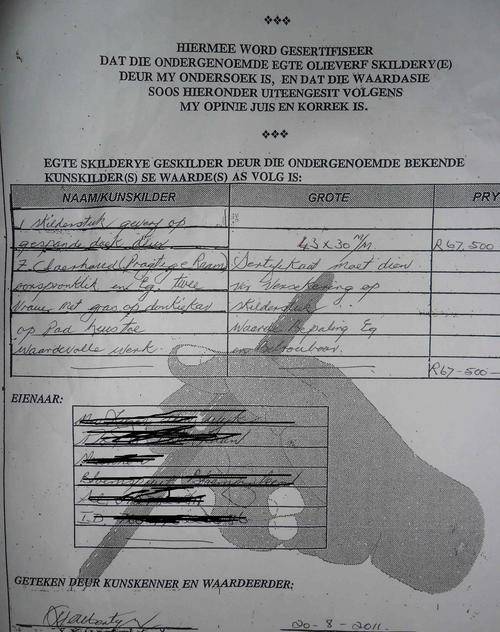 HIERMEE WORD GESERTIFISEER
DAT DIE ONDERGENOEMDE EGTE OLIEVERF SKILDERY(E)
DEUR MY ONDERSOEK IS, EN DAT DIE WAARDASIE
SOOS HIERONDER UITEENGESIT VOLGENS
MY OPINIE JUIS EN KORREK IS.
EGTE SKILDERYE GESKILDER DEUR DIE ONDERGENOEMDE BEKENDE
KUNSKILDER(S) SE WAARDE(S) AS VOLG IS:
NAAM/KUNSKILDER GROTE PRY
1 skilderstuk gewerf op
gespande doek deur 43 x 30 m/m R67,500
Z. (Pragtige Raam) Sertifikaat moet dien
oorspronklik en Eg. twee vir Versekering op
Vroue met gras op donkiekar skilderstuk.
op Pad huistoe Waarde bepaling Eg
waardevolle werk. en betroubaar.
R67-500-
EIENAAR:
GETEKEN DEUR KUNSKENNER EN WAARDEERDER:
20-8-2011